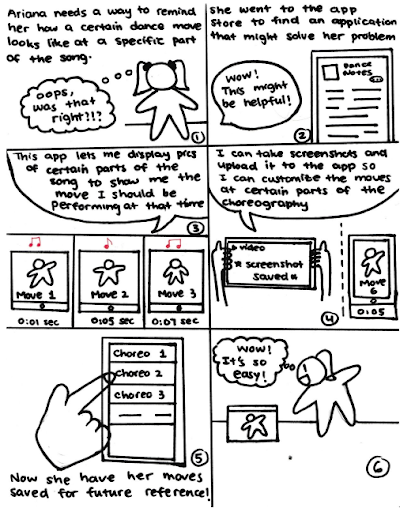 Ariana needs a way to remind
her how a certain dance move
looks like at a specific part
of the song.
oops,
was that
right?!?
1
She went to the app
Store to find an application
that might solve her problem
wow!
This might
be helpful!
Dance
Notes
2
This app lets me display pics
of certain parts of the
song to show me the
move I should be
performing at that time
3
Move 1
0:01 sec
Move 2
0:05 sec
Move 3
0:07 sec
I can take screenshots and
upload it to the app so
I can customize the moves
at certain parts of the
choreography
video
* screenshot
saved *
4
Move
6
0:05
Choreo 1
Choreo 2
Choreo 3
5
Now she have her moves
saved for future reference!
wow!
It's so
easy!
6